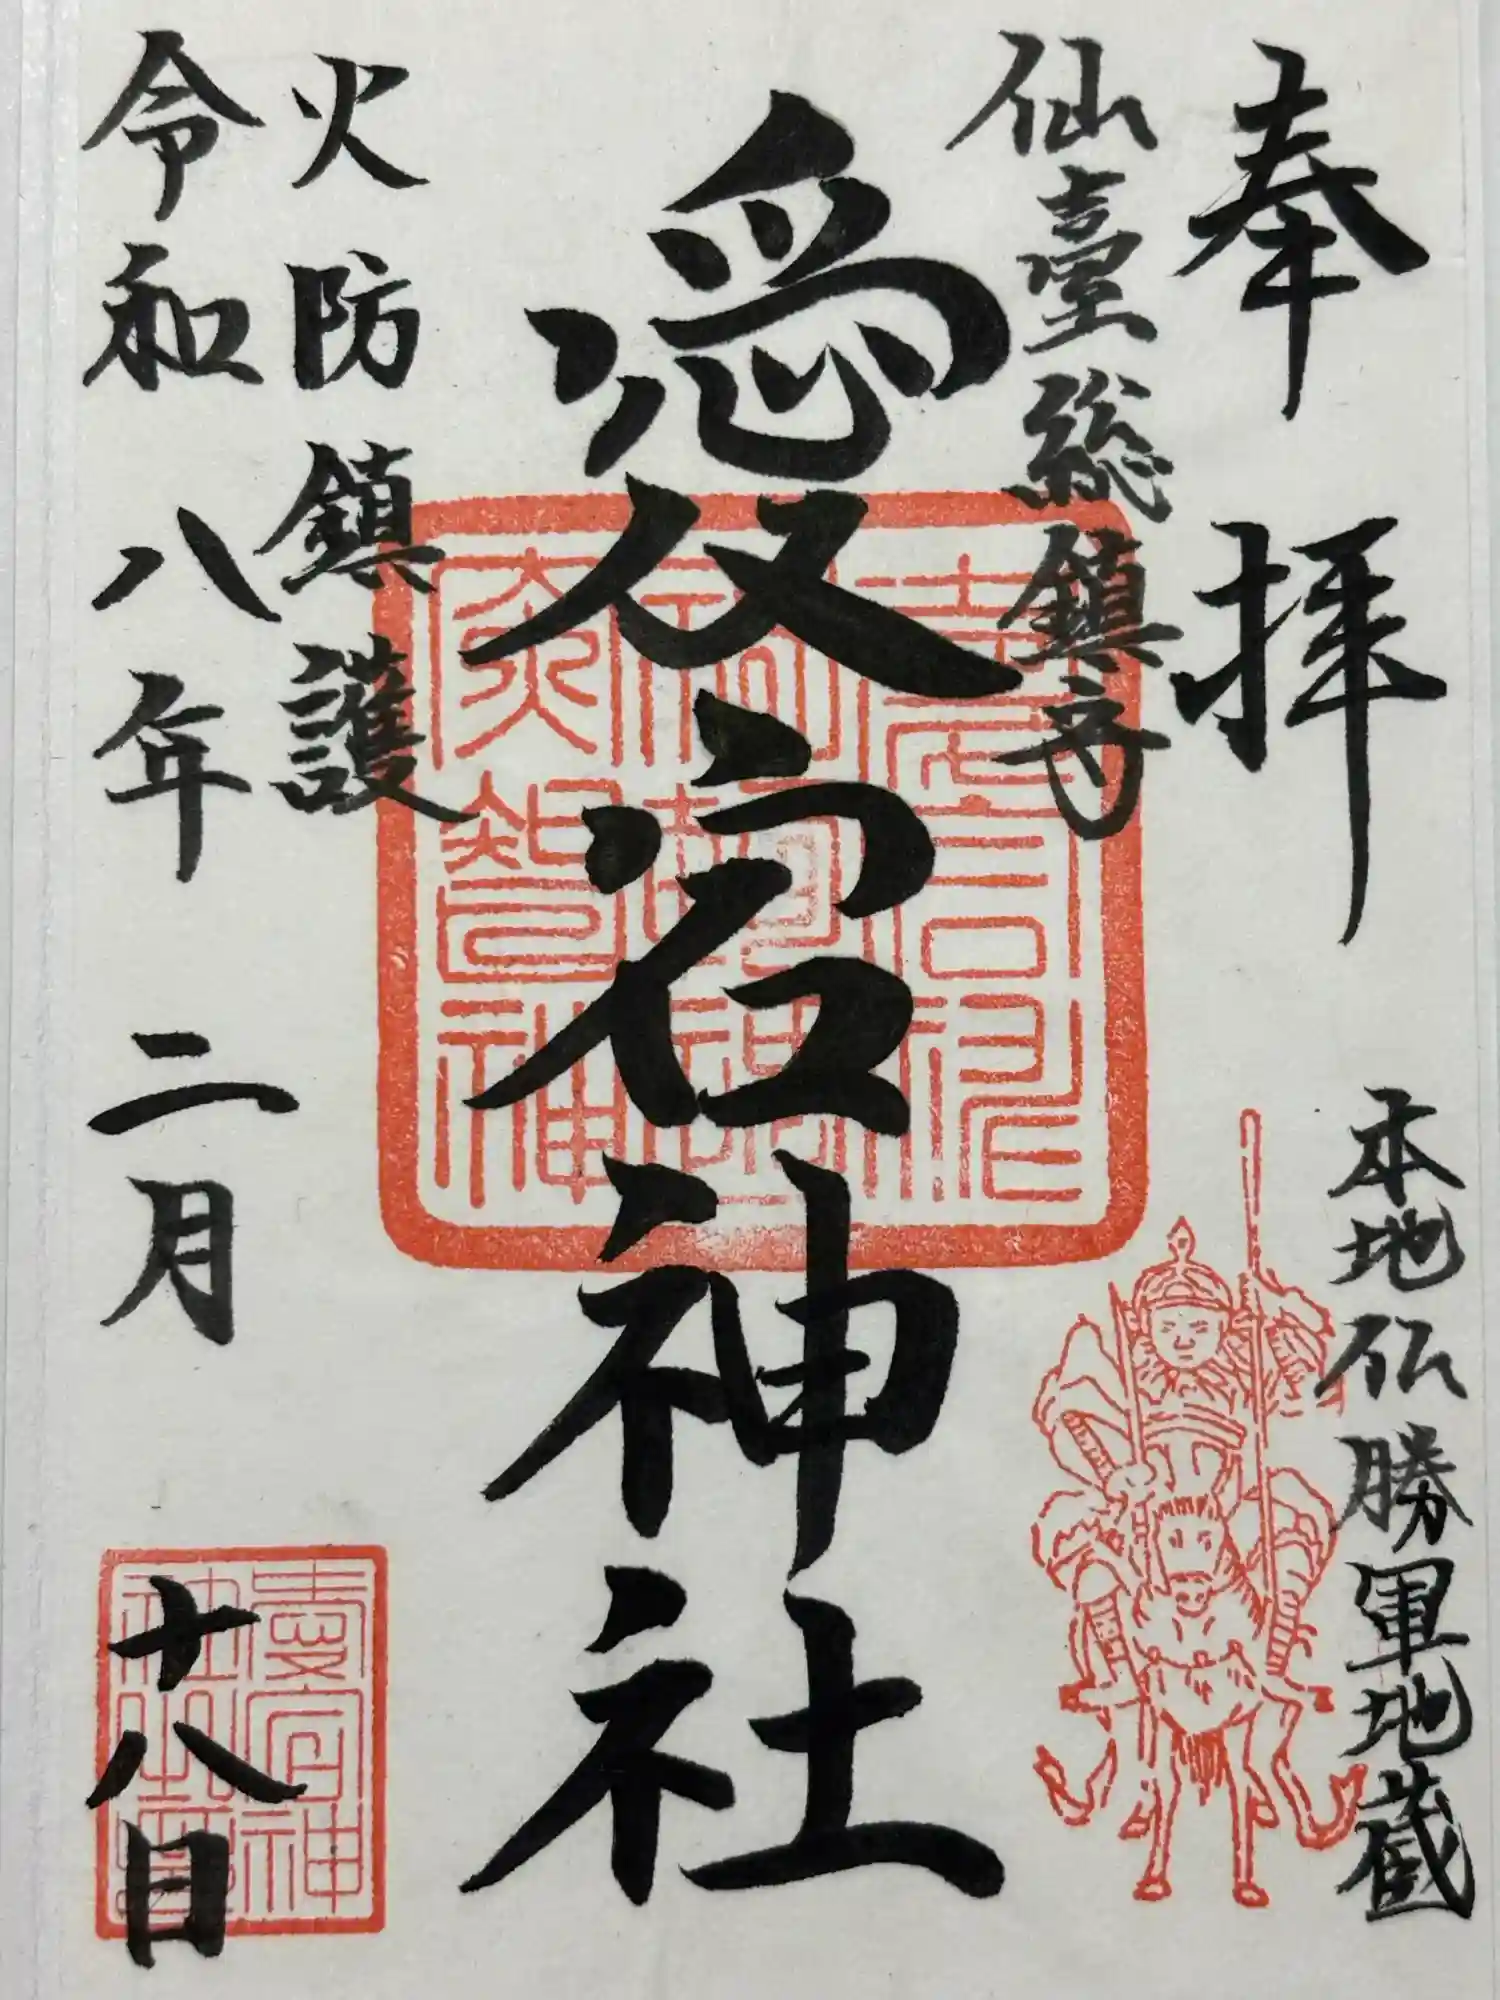 奉拝
本地仏勝軍地蔵
仙臺総鎮守
愛宕神社
火防鎮護
令和八年二月十八日
愛宕神
社之璽